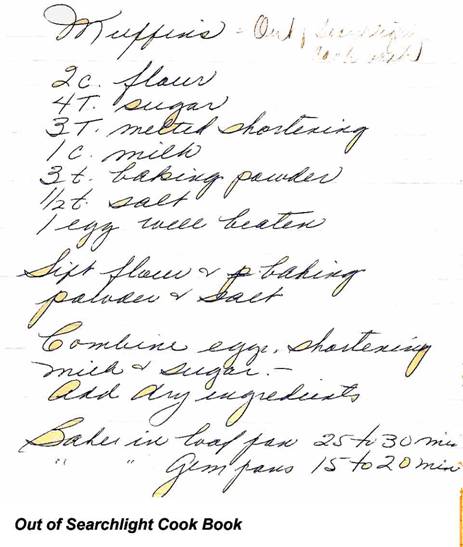 Muffins - Out of Searchlight
Cook Book
2 c. flour
4 T. sugar
3 T. melted shortening
1 c. milk
3 t. baking powder
1/2 t. salt
1 egg well beaten
Sift flour & p baking
powder & salt
Combine egg, shortening
milk & sugar. -
Add dry ingredients
Bakes in loaf pan 25 to 30 min
" " Gem pans 15 to 20 min
Out of Searchlight Cook Book